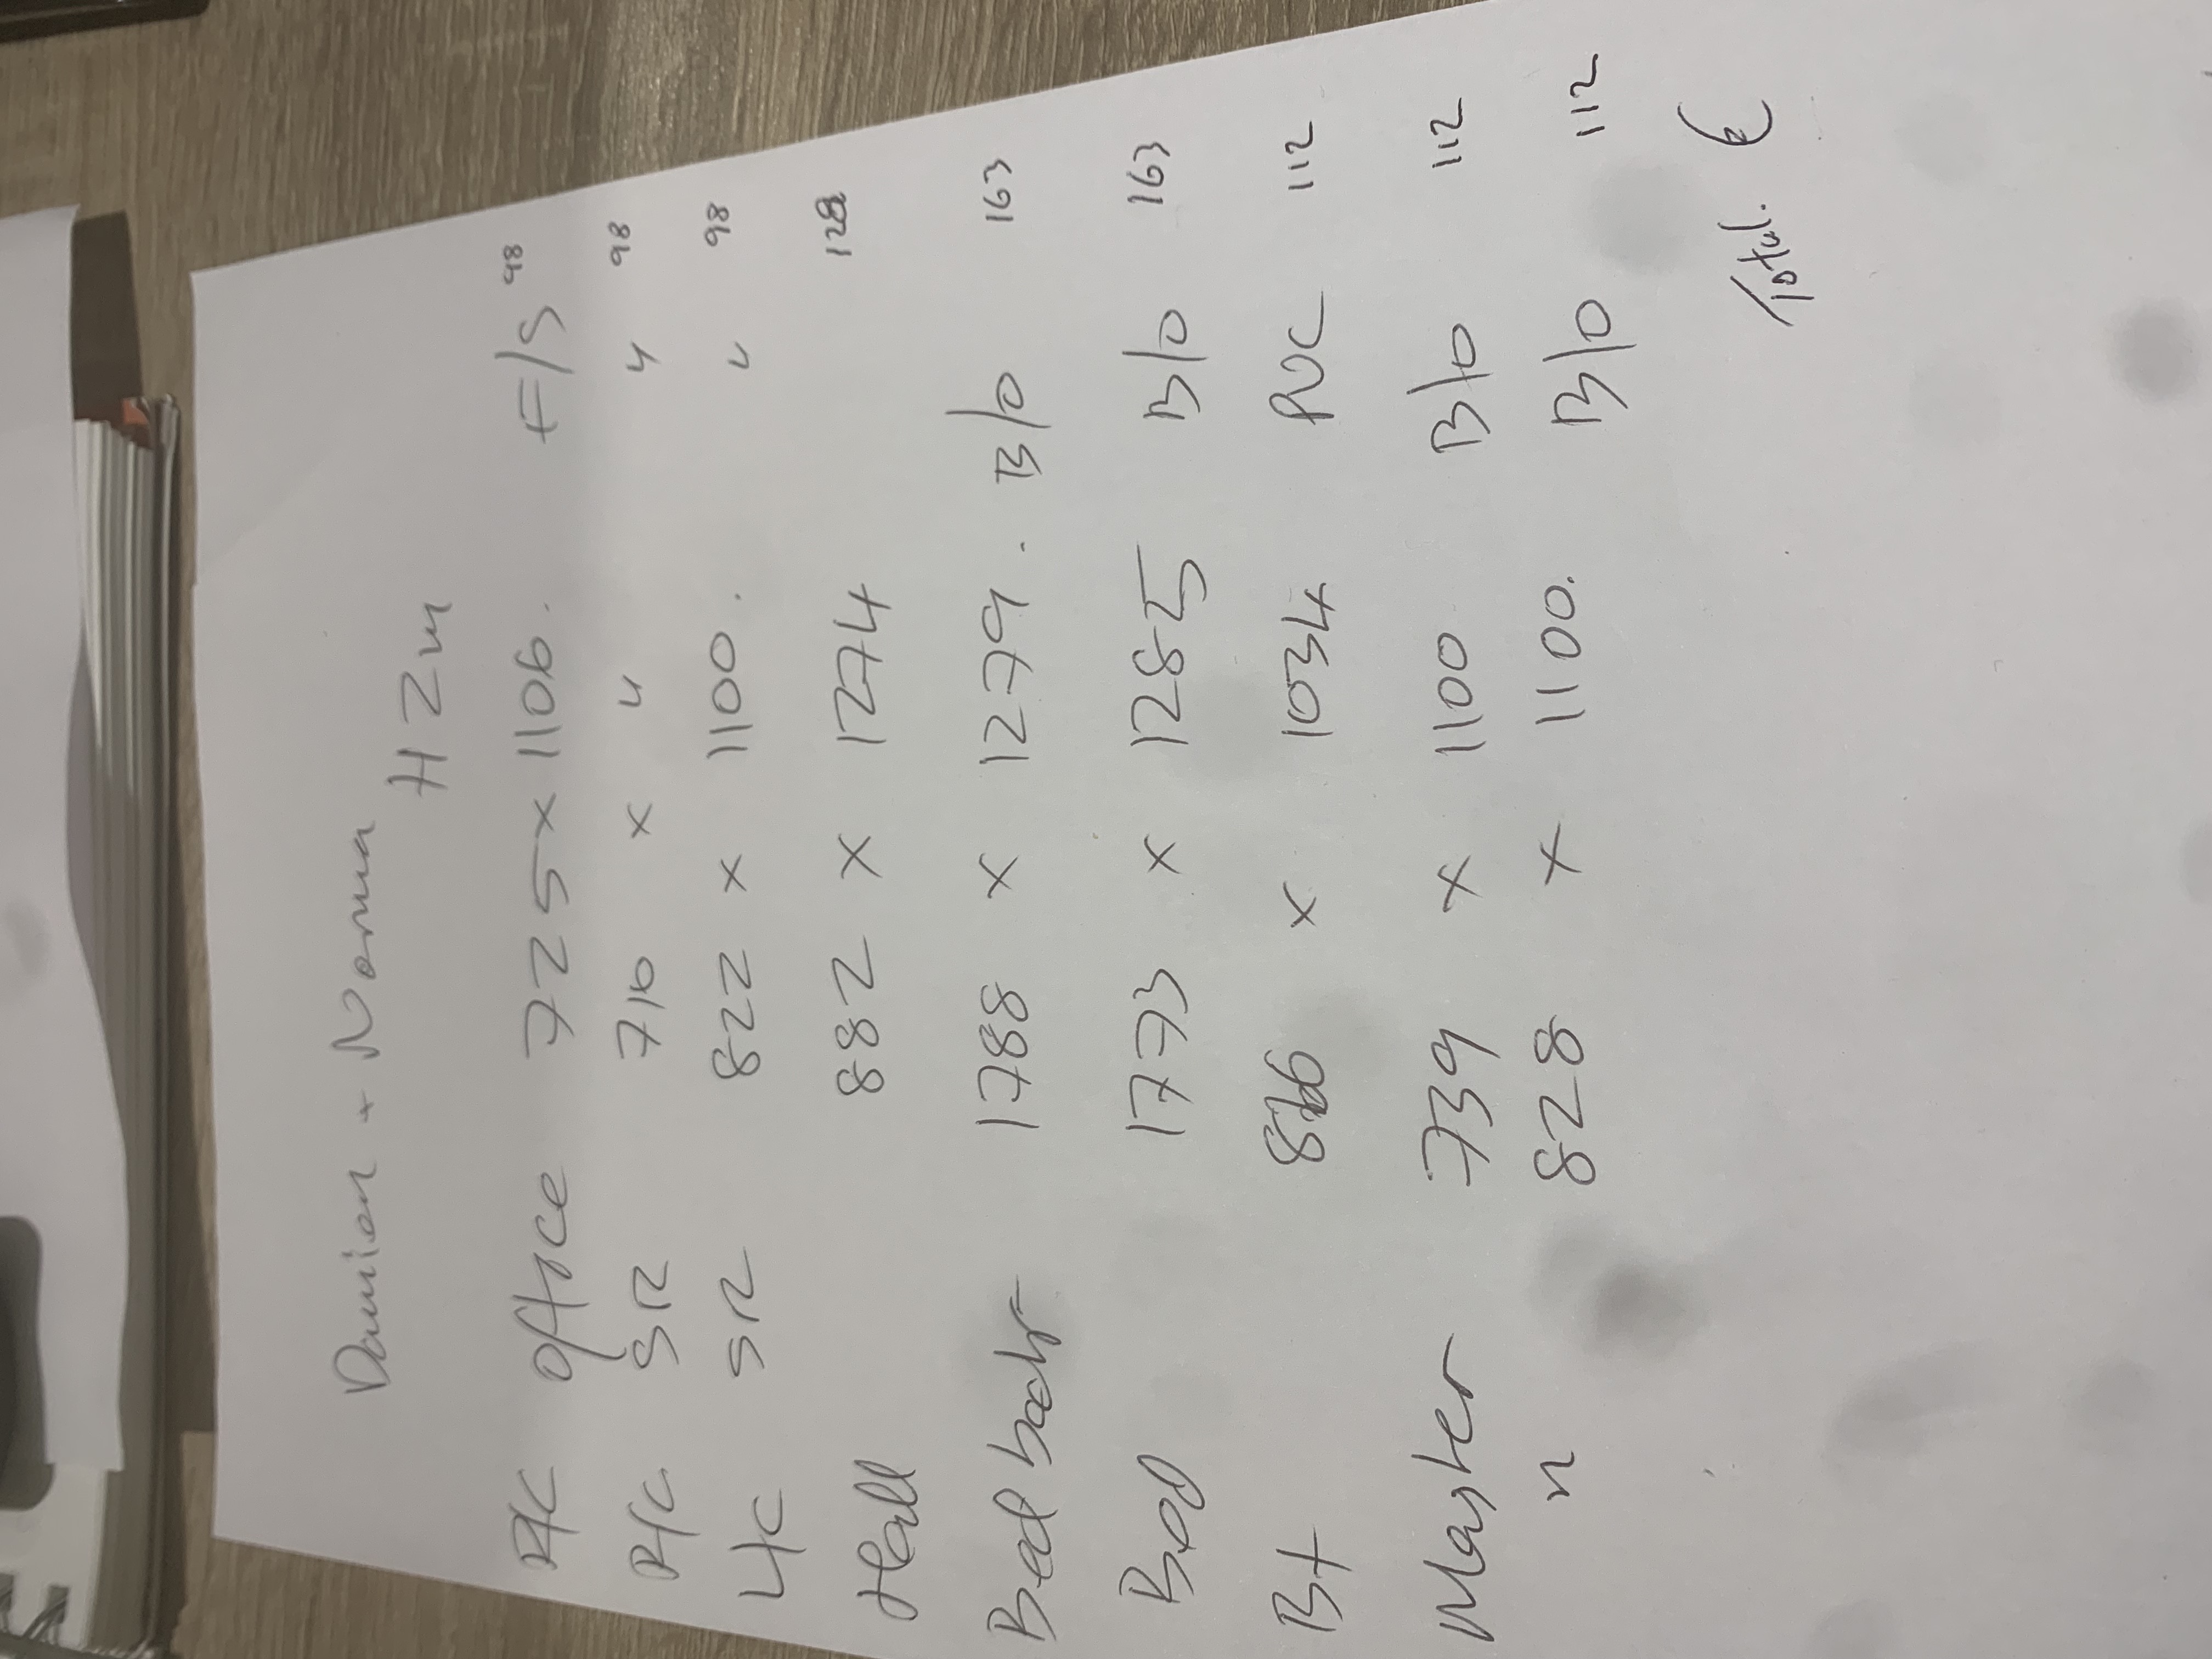 Damien + Norma
HZM
R/C office 725 x 1106. F/S 98
R/C SR 710 x " " 98
L/C SR 822 x 1100. " 98
Hall 882 x 1274 128
Bed back 1788 x 1279. B/O 163
Bed 1773 x 1285 B/O 163
Bt 866 x 1034 PVC 112
Master 739 x 1100 B/O 112
" 828 x 1100. B/O 112
Total. €